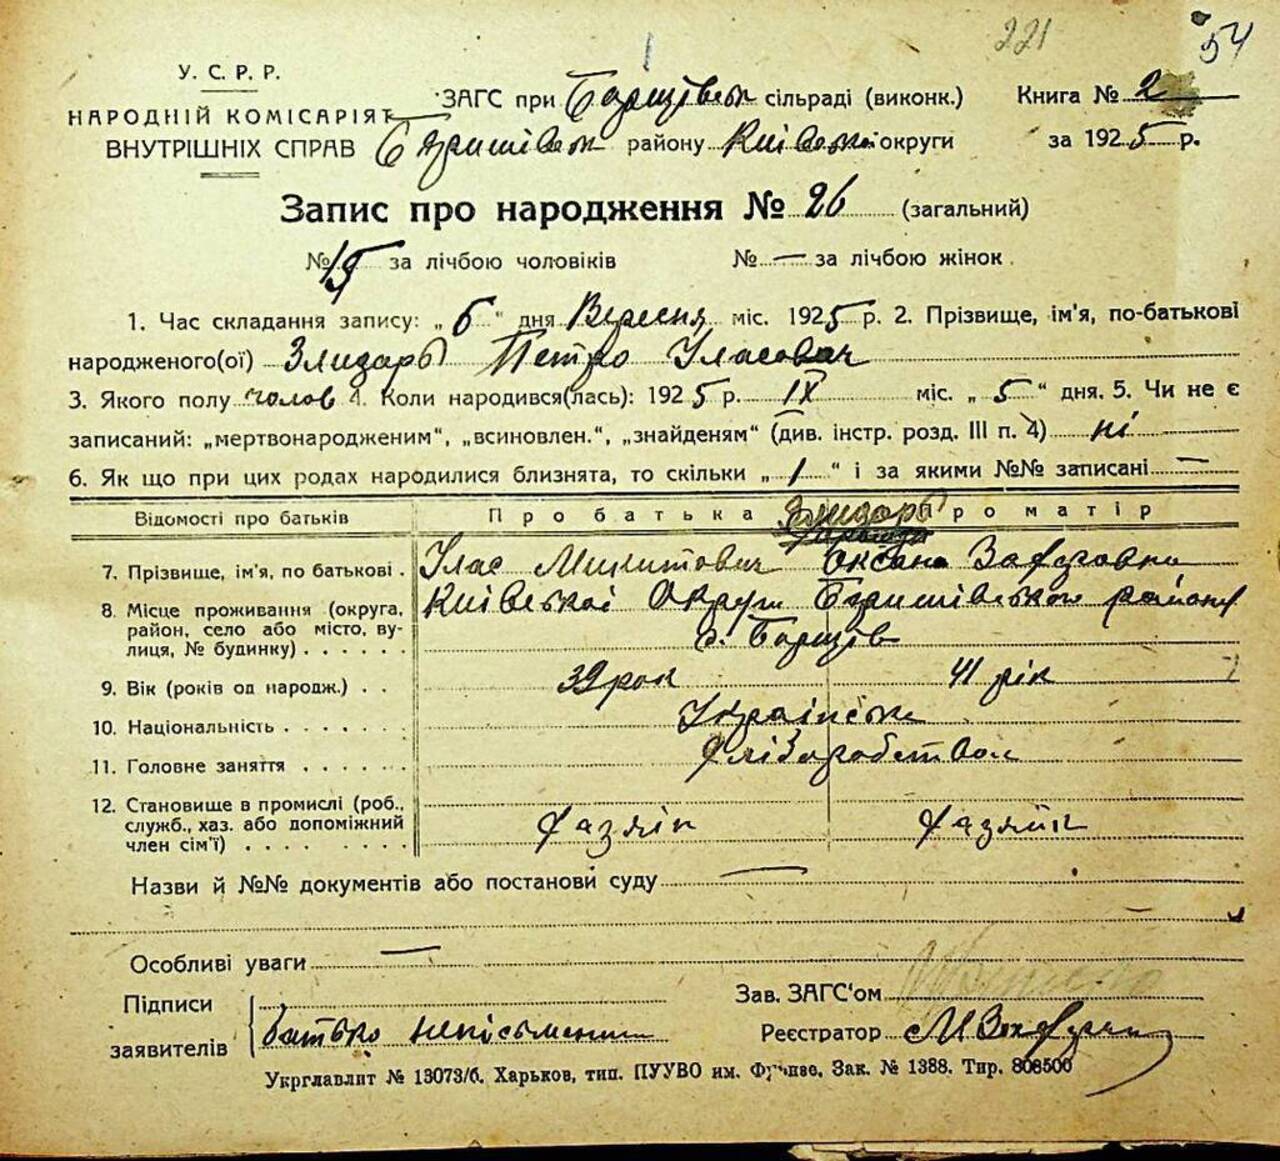 221 54
У. С. Р. Р.
НАРОДНІЙ КОМІСАРІЯТ
ВНУТРІШНІХ СПРАВ
ЗАГС при Борщівськ сільраді (виконк.) Книга № 2
району Київської округи за 1925 р.
Запис про народження № 26 (загальний)
№ 15 за лічбою чоловіків № — за лічбою жінок
1. Час складання запису: „6" дня Вересня міс. 1925 р. 2. Прізвище, ім'я, по-батькові
народженого(ої) Злидарь Петро Уласович
3. Якого полу чолов 4. Коли народився(лась): 1925 р. IX міс. „5" дня. 5. Чи не є
записаний: „мертвонародженим", „всиновлен.", „знайденям" (див. інстр. розд. III п. 4) ні
6. Як що при цих родах народилися близнята, то скільки „1" і за якими №№ записані —
Відомості про батьків Про батька Про матір
Злидарь
7. Прізвище, ім'я, по батькові . Улас Микитович Оксана
8. Місце проживання (округа, район, село або місто, вулиця, № будинку) . . . . . . Київської Округи Баришівського району
с. Борщів
9. Вік (років од народж.) . . 39 рок 41 рік
10. Національність . . . . . . Українськ
11. Головне заняття . . . . . . Хліборобством
12. Становище в промислі (роб., служб., хаз. або допоміжний член сім'ї) . . . . . . . . Хазяїн Хазяйк
Назви й №№ документів або постанови суду —
Особливі уваги —
Підписи заявителів батько неписьмений
Зав. ЗАГС'ом
Реєстратор
Укрглавліт № 13073/б. Харьков, тип. ПУУВО им. Фрунзе. Зак. № 1388. Тир. 808500